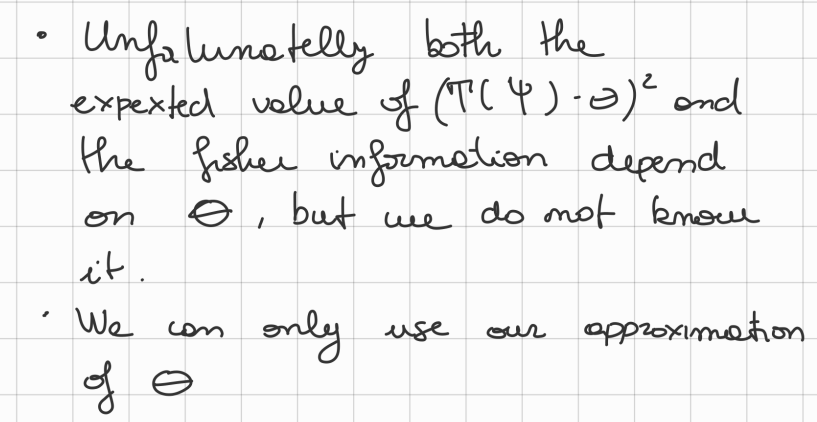 • Unfalunatelly both the
expexted value of (T(Ψ) - Θ)² and
the fisher information depend
on Θ, but we do not know
it.
• We can only use our approximation
of Θ